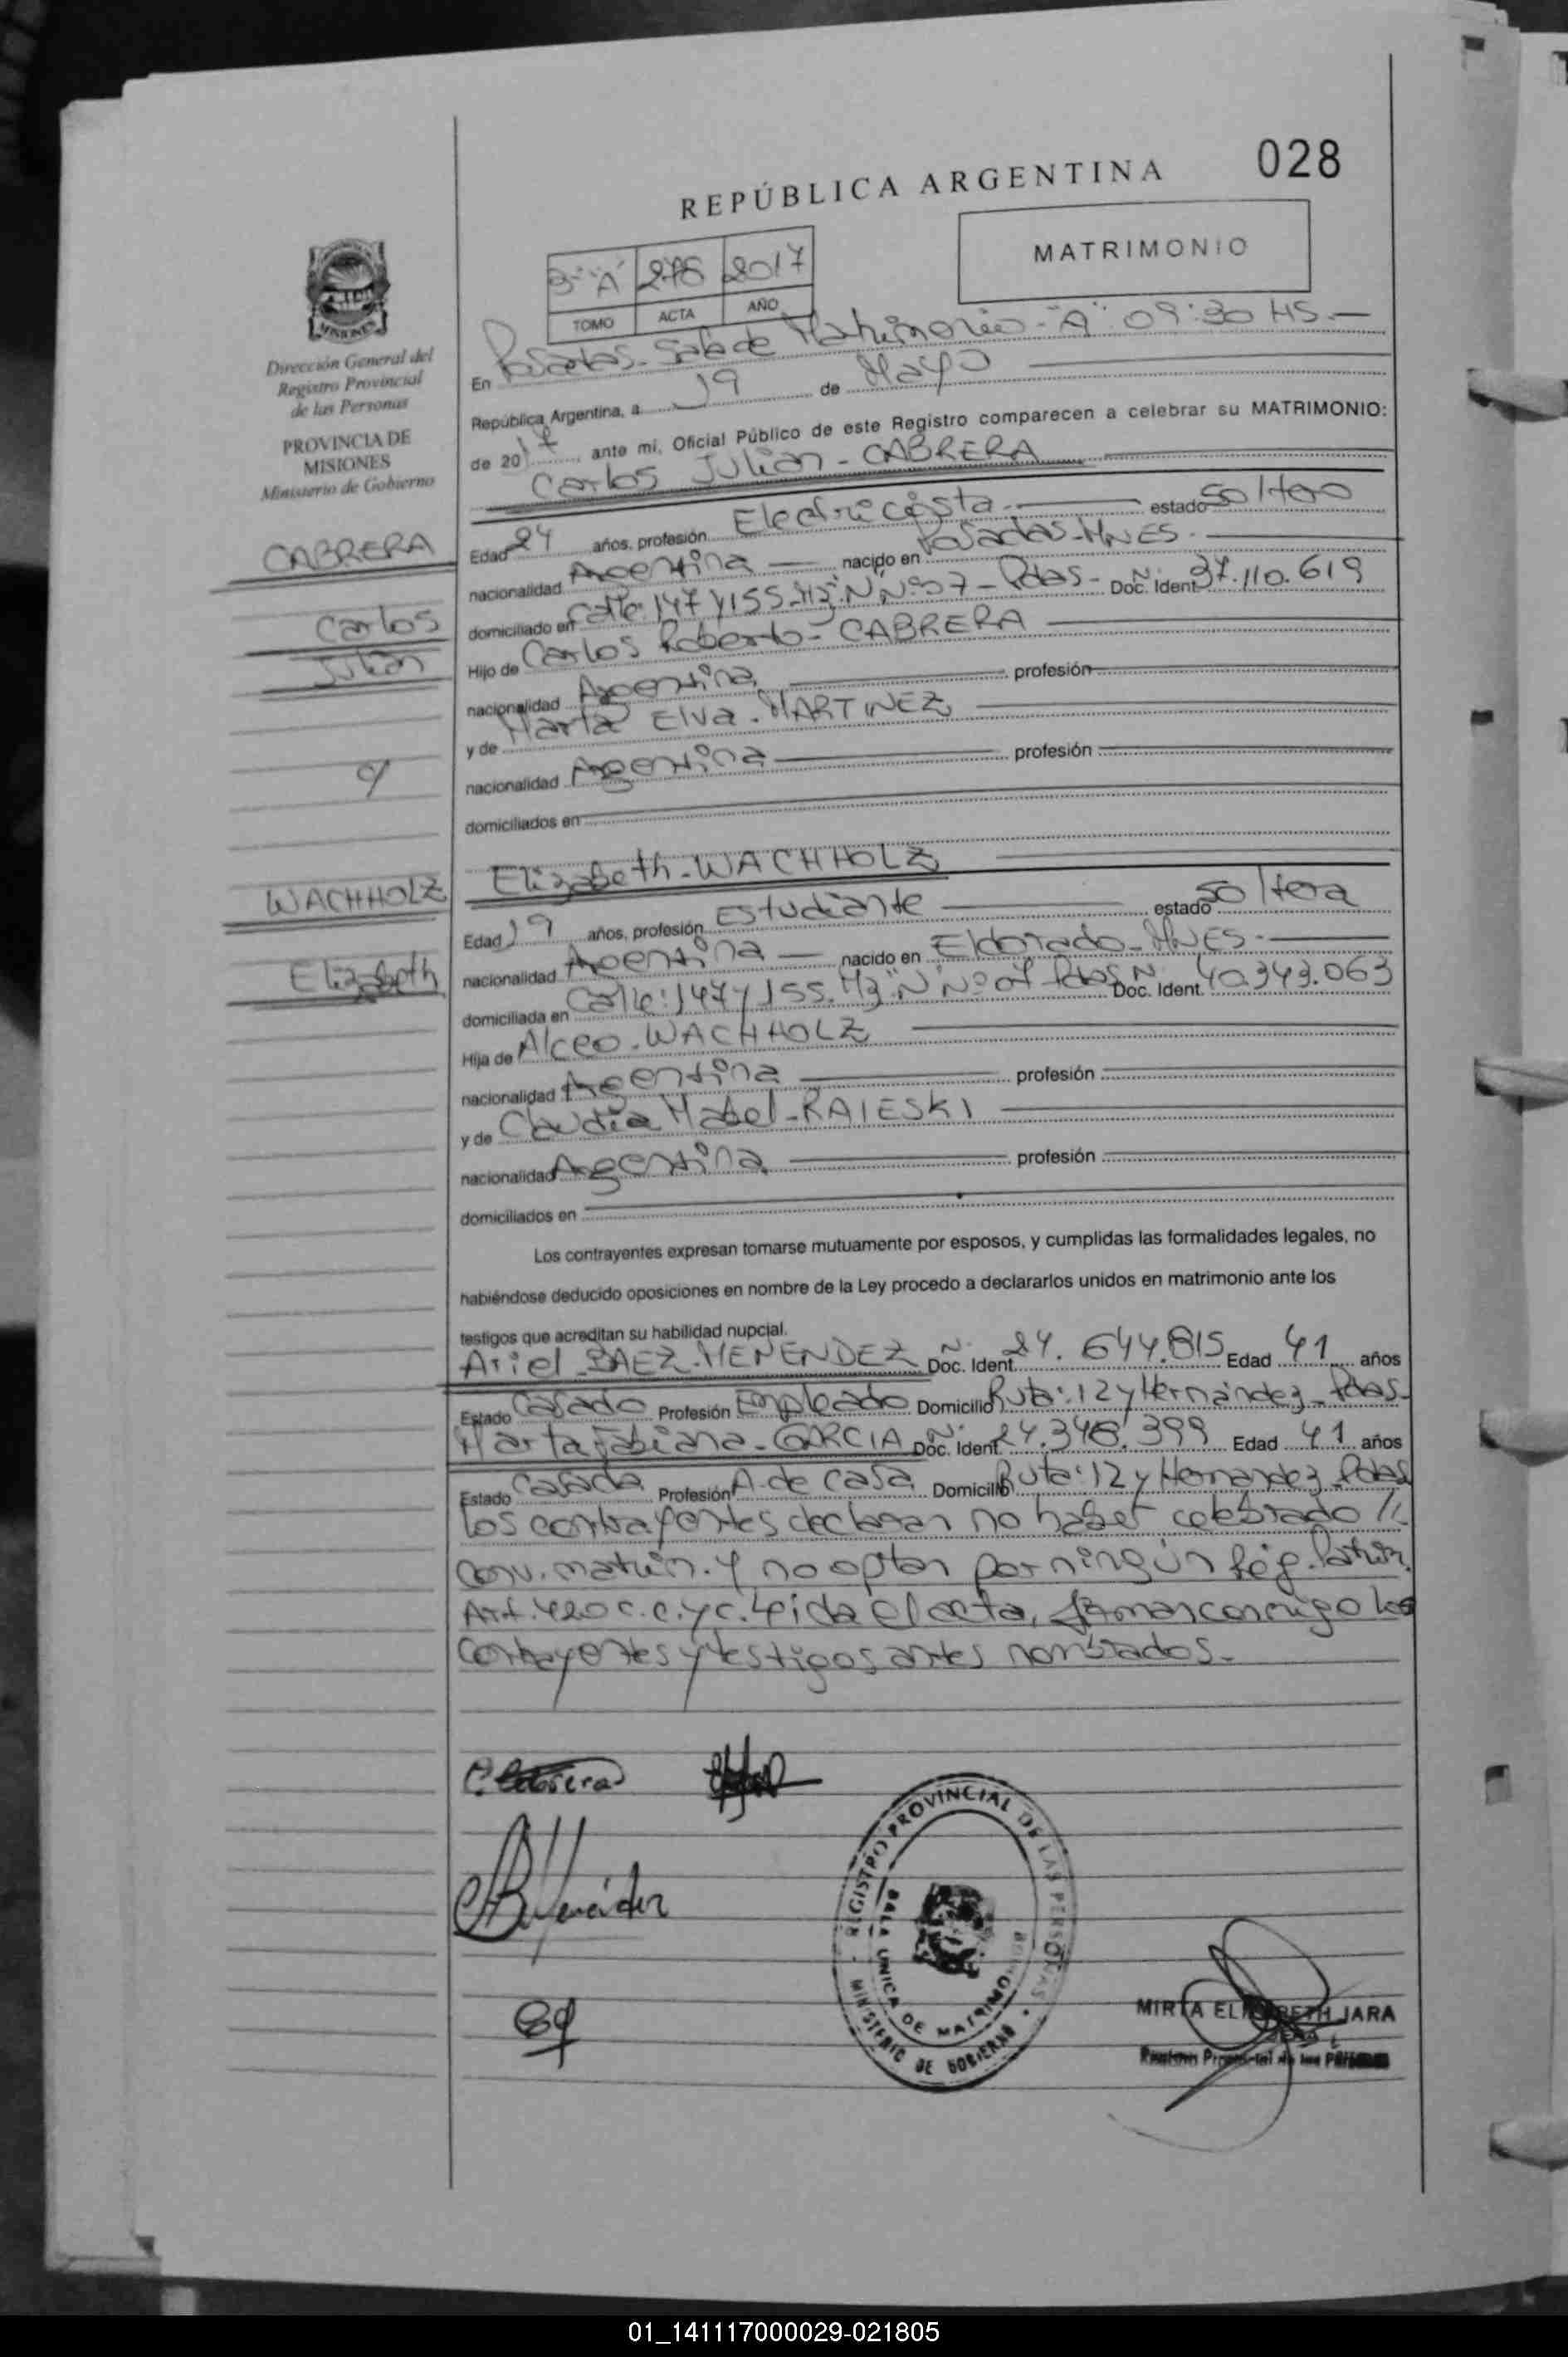 028
REPÚBLICA ARGENTINA
MATRIMONIO
3º "A" 276 2017
TOMO ACTA AÑO
MISIONES
Dirección General del
Registro Provincial
de las Personas
PROVINCIA DE
MISIONES
Ministerio de Gobierno
CABRERA
Carlos
Julián
y
WACHHOLZ
Elizabeth
En Posadas - Sala de Matrimonio - "A" 09:30 HS.-
República Argentina, a 19 de Mayo
de 2017 ante mi, Oficial Público de este Registro comparecen a celebrar su MATRIMONIO:
Carlos Julián - CABRERA
Edad 24 años, profesión Electricista estado Soltero
nacionalidad Argentina nacido en Posadas - MNES.
domiciliado en Calle: 147 y 155 Mz. "N" Nº 07 - Pdas - Doc. Ident. Nº 37.110.619
Hijo de Carlos Roberto - CABRERA
nacionalidad Argentina profesión
y de Marta Elva - MARTINEZ
nacionalidad Argentina profesión
domiciliados en
Elizabeth - WACHHOLZ
Edad 19 años, profesión Estudiante estado Soltera
nacionalidad Argentina nacido en Eldorado - MNES.
domiciliada en Calle: 147 y 155. Mz "N" Nº 07 Pdas Doc. Ident. Nº 40.343.063
Hija de Alceo - WACHHOLZ
nacionalidad Argentina profesión
y de Claudia Mabel - RAIESKI
nacionalidad Argentina profesión
domiciliados en
Los contrayentes expresan tomarse mutuamente por esposos, y cumplidas las formalidades legales, no
habiéndose deducido oposiciones en nombre de la Ley procedo a declararlos unidos en matrimonio ante los
testigos que acreditan su habilidad nupcial.
Ariel - BAEZ MENENDEZ Doc. Ident. Nº 24.644.815 Edad 41 años
Estado Casado Profesión Empleado Domicilio Ruta: 12 y Hernández - Pdas-
Marta Fabiana - GARCIA Doc. Ident. Nº 24.348.399 Edad 41 años
Estado Casada Profesión A. de Casa Domicilio Ruta: 12 y Hernandez - Pdas
Los contrayentes declaran no haber celebrado //
conv. matrim. y no optan por ningún rég. Patrim.
Art. 420 c.c. y c. Leida el acta, firman conmigo los
contrayentes y testigos antes nombrados.-
C. Cabrera
REGISTRO PROVINCIAL DE LAS PERSONAS
SALA UNICA DE MATRIMONIO
MINISTERIO DE GOBIERNO
MIRTA ELIZABETH JARA
Registro Provincial de las Personas
01_141117000029-021805